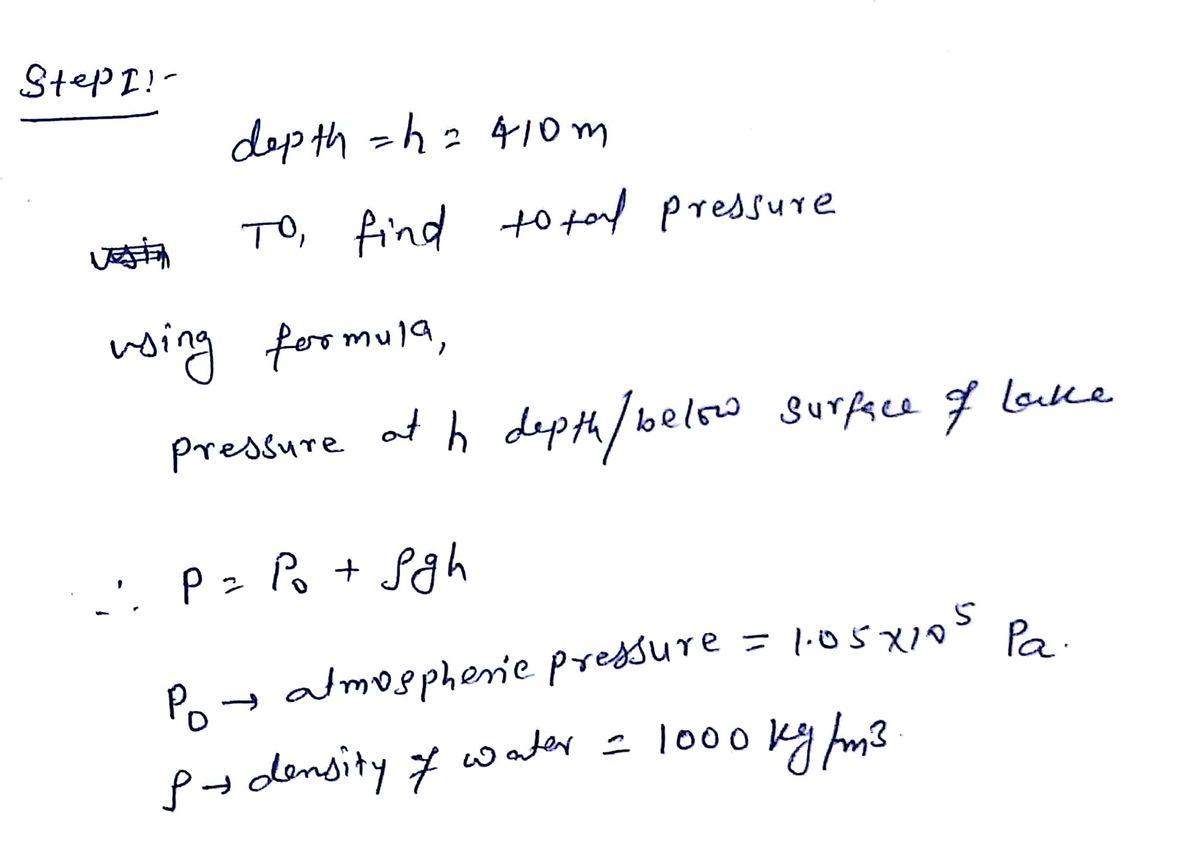 Step I:-
depth = h = 410 m
To, find total pressure
using formula,
pressure at h depth/below surface of lake
∴ P = P₀ + ρgh
P₀ → atmospheric pressure = 1.05 × 10⁵ Pa.
ρ → density of water = 1000 kg/m3